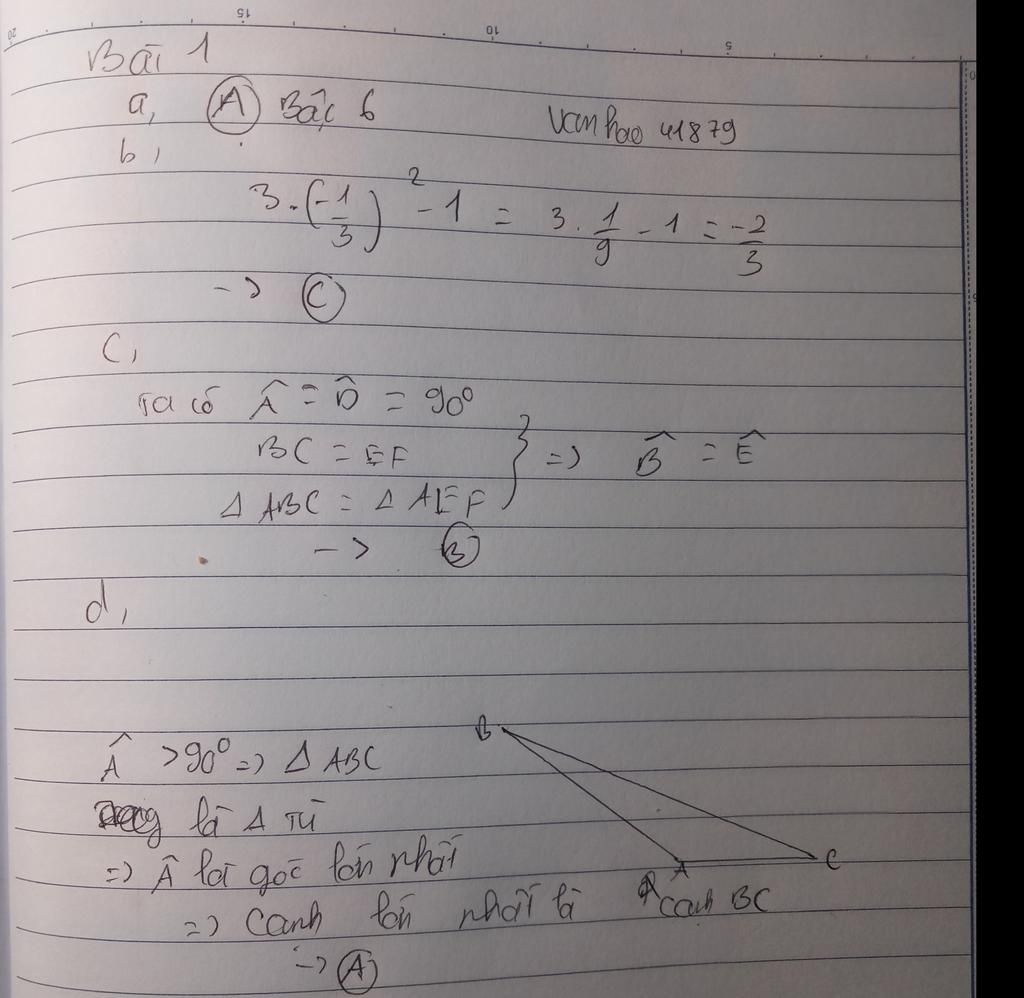 20 15 10 5 0
Bài 1
a, (A) Bậc 6
vanhao 41879
b,
3.(-1/3)² - 1 = 3. 1/9 - 1 = -2/3
-> (C)
c,
Ta có Â = D̂ = 90⁰
BC = EF
Δ ABC = Δ AEF
} => B̂ = Ê
-> (B)
d,
B
 > 90⁰ => Δ ABC
là Δ Tù
=> Â là góc lớn nhất
A C
=> Cạnh lớn nhất là cạnh BC
-> (A)